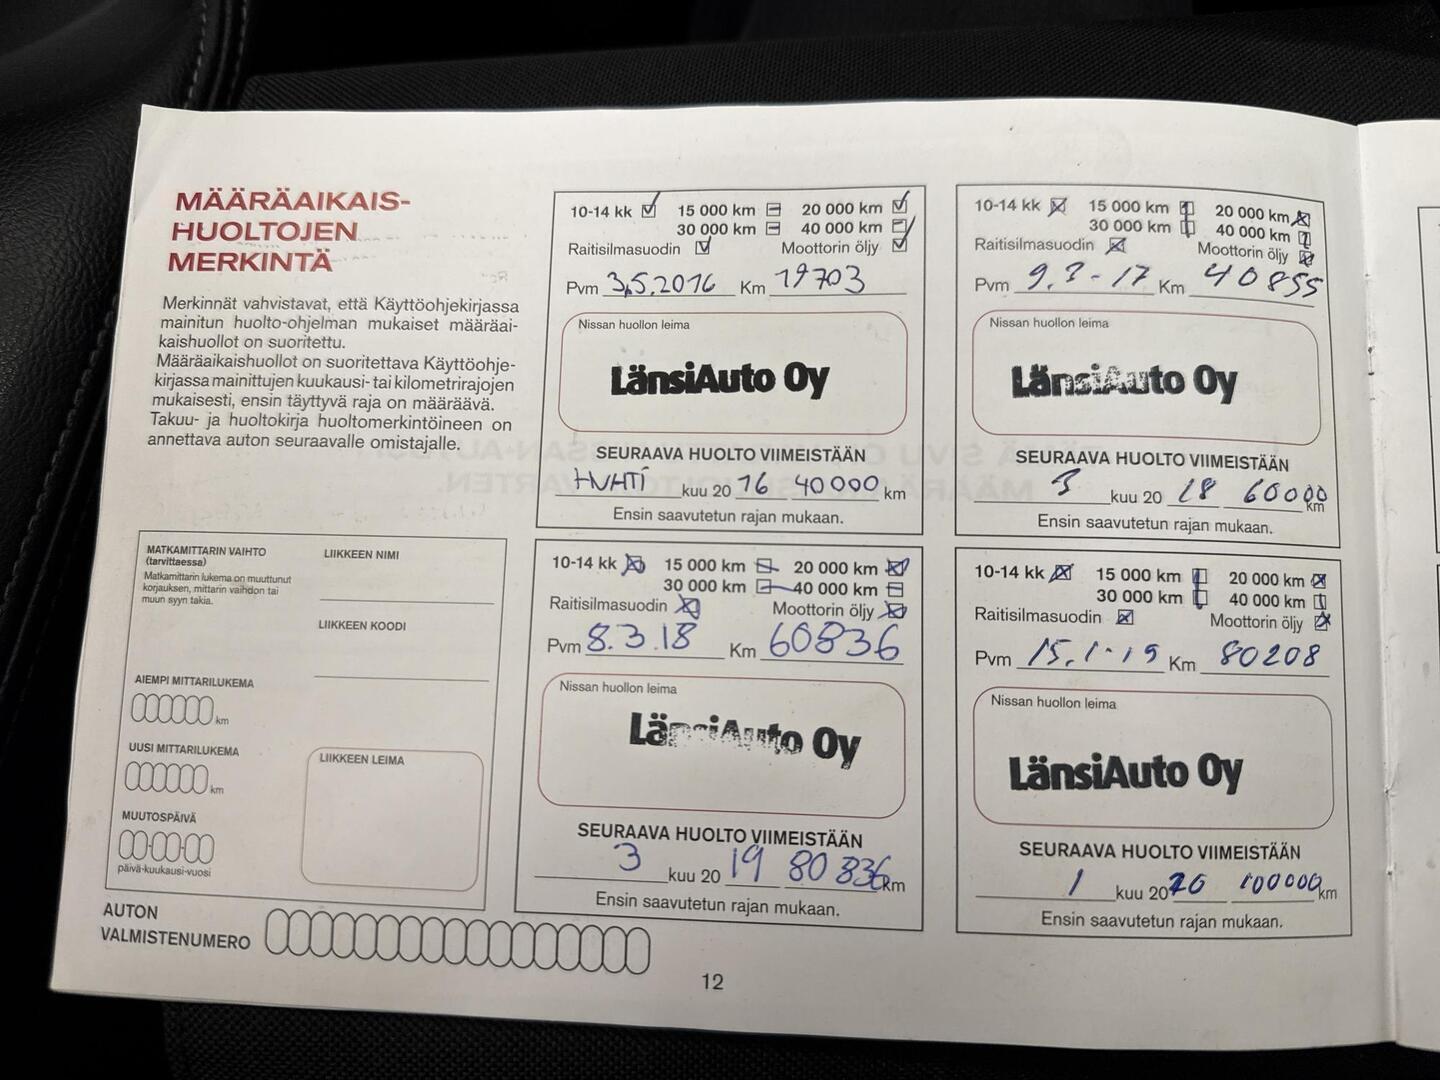 MÄÄRÄAIKAIS-
HUOLTOJEN
MERKINTÄ
Merkinnät vahvistavat, että Käyttöohjekirjassa
mainitun huolto-ohjelman mukaiset määräai-
kaishuollot on suoritettu.
Määräaikaishuollot on suoritettava Käyttöohje-
kirjassa mainittujen kuukausi- tai kilometrirajojen
mukaisesti, ensin täyttyvä raja on määräävä.
Takuu- ja huoltokirja huoltomerkintöineen on
annettava auton seuraavalle omistajalle.
MATKAMITTARIN VAIHTO
(tarvittaessa)
Matkamittarin lukema on muuttunut
korjauksen, mittarin vaihdon tai
muun syyn takia.
LIIKKEEN NIMI
LIIKKEEN KOODI
AIEMPI MITTARILUKEMA
km
UUSI MITTARILUKEMA
km
MUUTOSPÄIVÄ
päivä-kuukausi-vuosi
LIIKKEEN LEIMA
AUTON
VALMISTENUMERO
10-14 kk 15 000 km 20 000 km
30 000 km 40 000 km
Raitisilmasuodin Moottorin öljy
Pvm 3.5.2016 Km 19703
Nissan huollon leima
LänsiAuto Oy
SEURAAVA HUOLTO VIIMEISTÄÄN
HUHTI kuu 20 16 40000 km
Ensin saavutetun rajan mukaan.
10-14 kk 15 000 km 20 000 km
30 000 km 40 000 km
Raitisilmasuodin Moottorin öljy
Pvm 9.3-17 Km 40855
Nissan huollon leima
LänsiAuto Oy
SEURAAVA HUOLTO VIIMEISTÄÄN
3 kuu 20 18 60000 km
Ensin saavutetun rajan mukaan.
10-14 kk 15 000 km 20 000 km
30 000 km 40 000 km
Raitisilmasuodin Moottorin öljy
Pvm 8.3.18 Km 60836
Nissan huollon leima
LänsiAuto Oy
SEURAAVA HUOLTO VIIMEISTÄÄN
3 kuu 20 19 80 836 km
Ensin saavutetun rajan mukaan.
10-14 kk 15 000 km 20 000 km
30 000 km 40 000 km
Raitisilmasuodin Moottorin öljy
Pvm 15.1-19 Km 80208
Nissan huollon leima
LänsiAuto Oy
SEURAAVA HUOLTO VIIMEISTÄÄN
1 kuu 20 20 100000 km
Ensin saavutetun rajan mukaan.
12